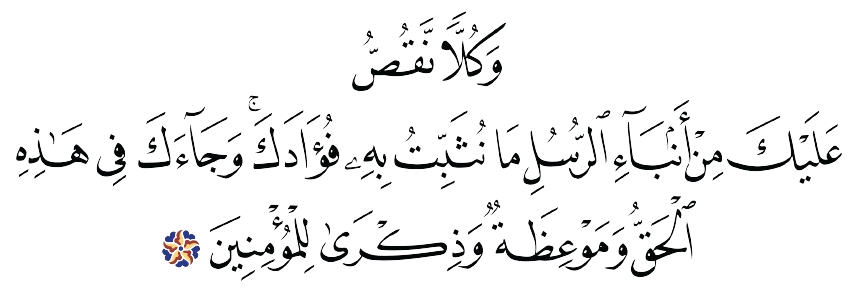 وَكُلًّا نَّقُصُّ
عَلَيْكَ مِنْ أَنۢبَآءِ ٱلرُّسُلِ مَا نُثَبِّتُ بِهِۦ فُؤَادَكَ ۚ وَجَآءَكَ فِى هَـٰذِهِ
ٱلْحَقُّ وَمَوْعِظَةٌ وَذِكْرَىٰ لِلْمُؤْمِنِينَ